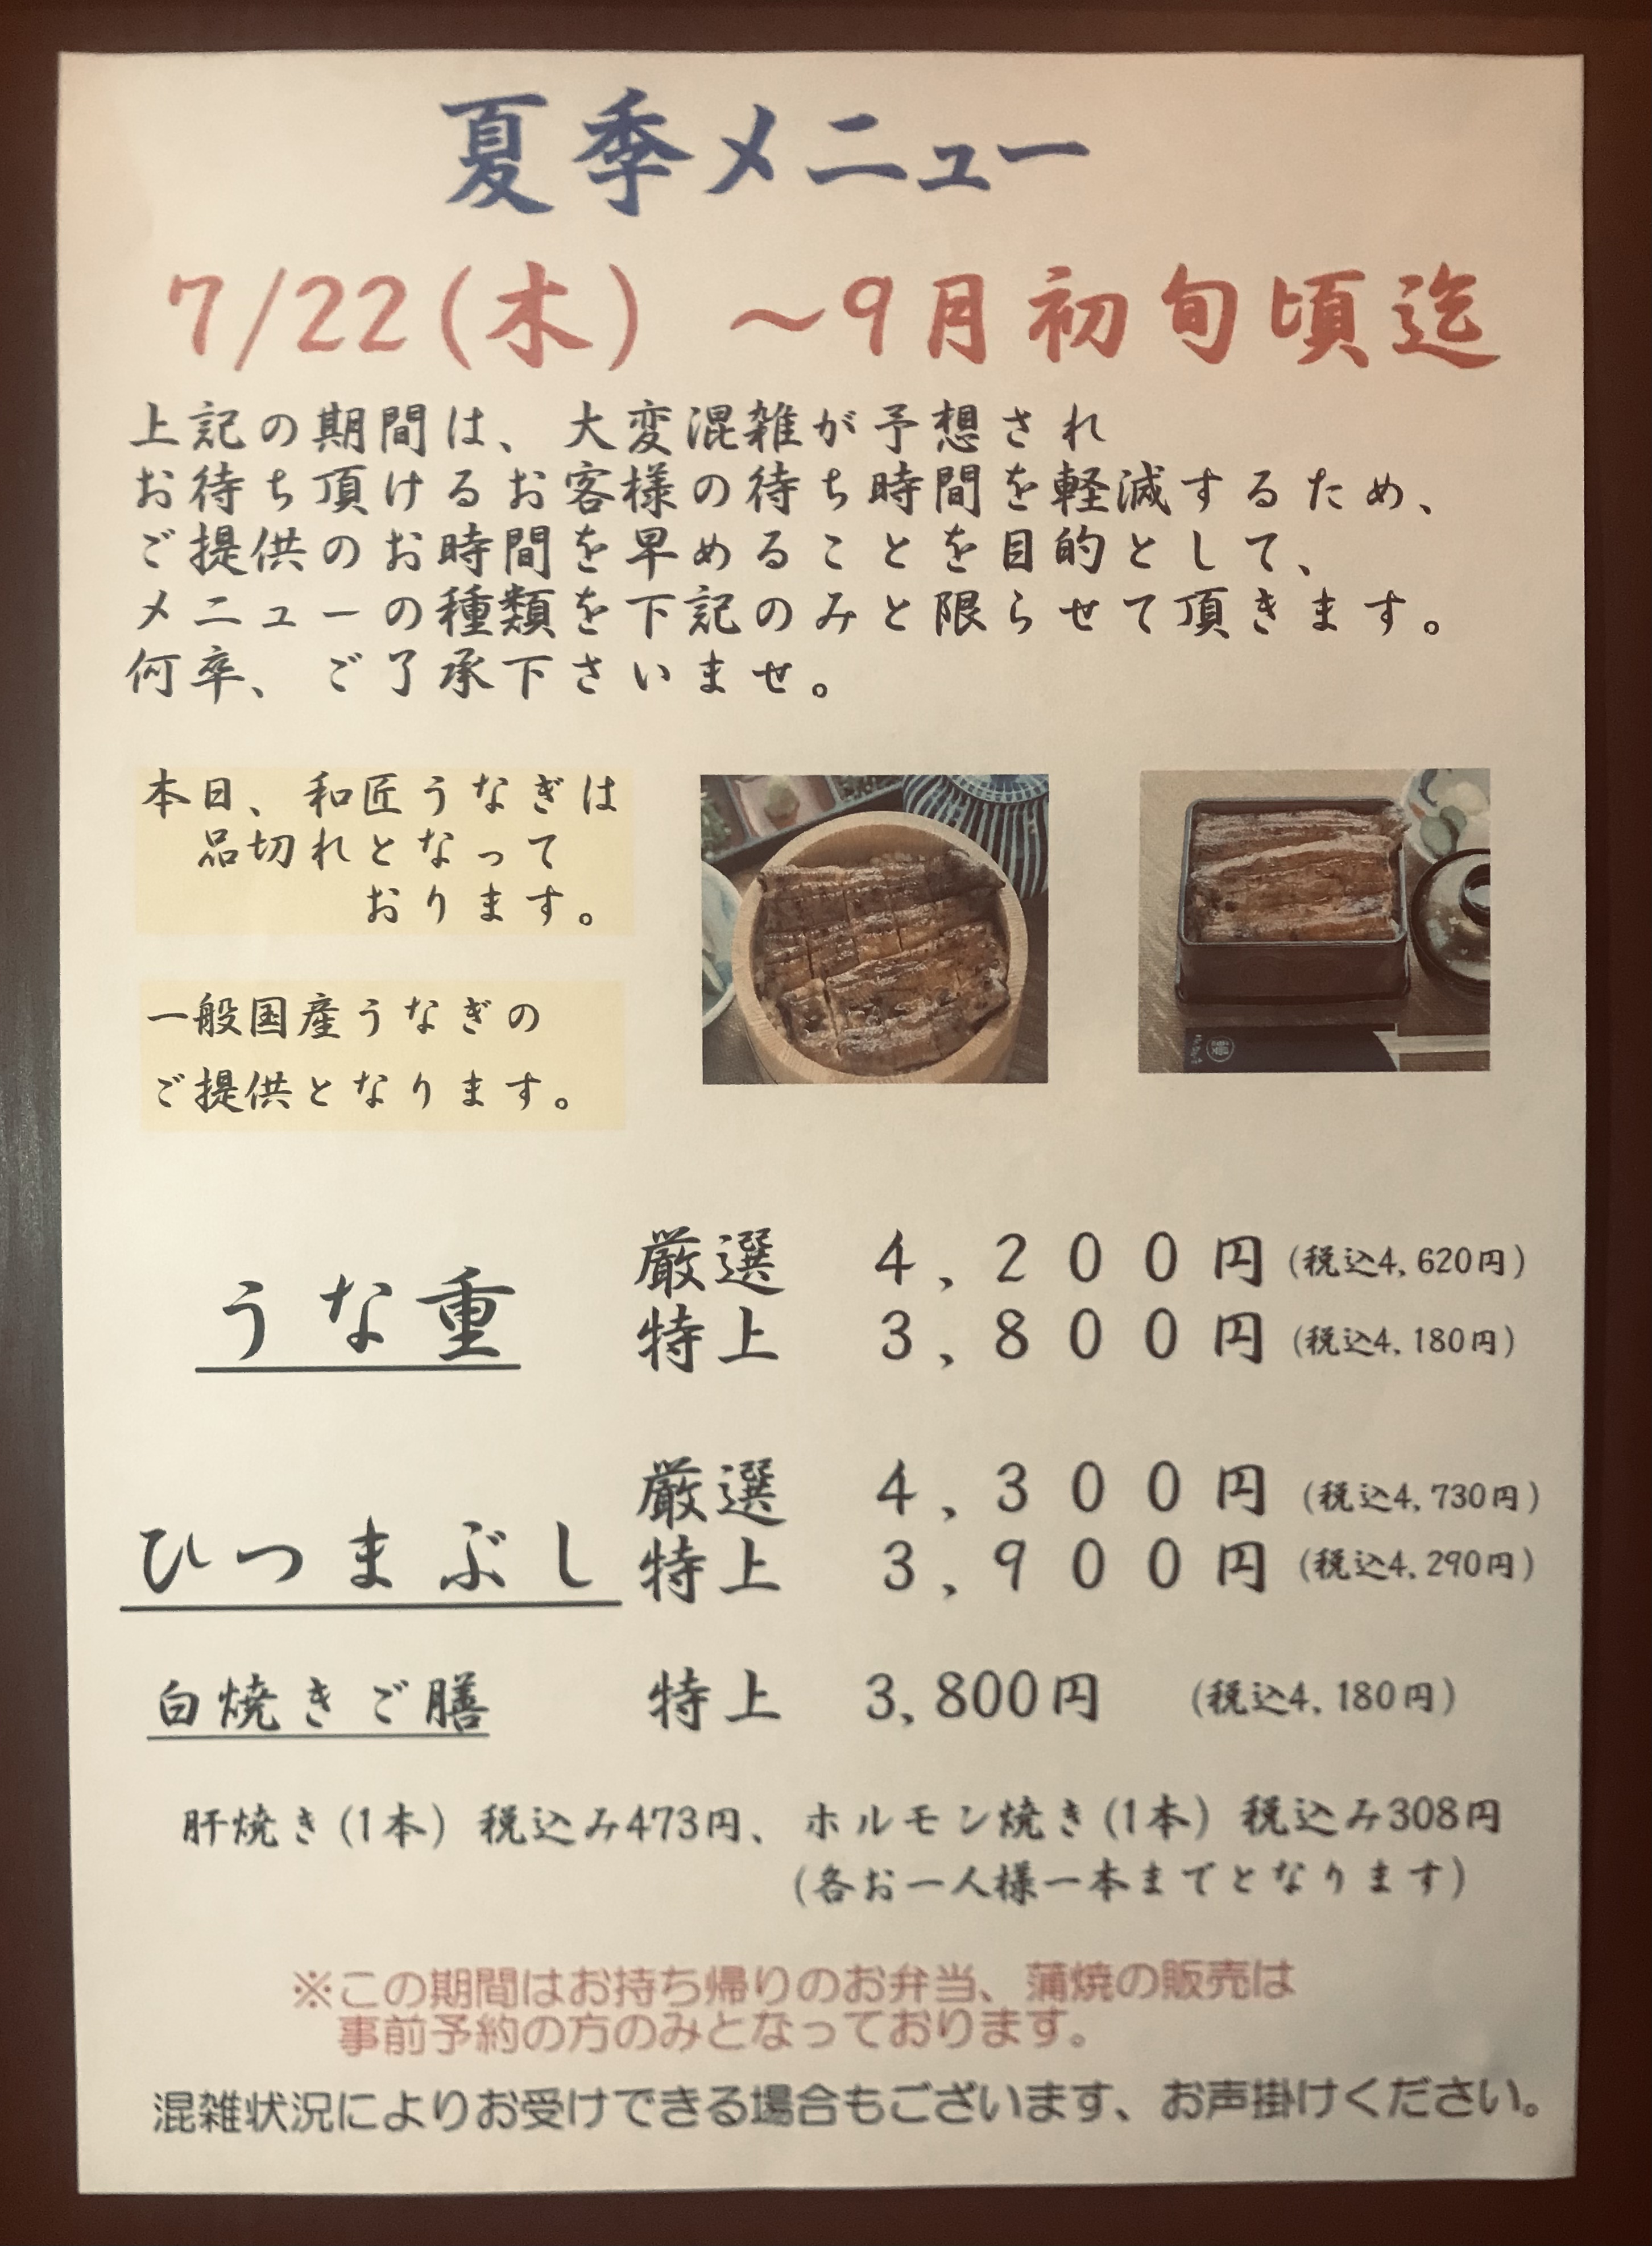 夏季メニュー
7/22(木) ～9月初旬頃迄
上記の期間は、大変混雑が予想され
お待ち頂けるお客様の待ち時間を軽減するため、
ご提供のお時間を早めることを目的として、
メニューの種類を下記のみと限らせて頂きます。
何卒、ご了承下さいませ。
本日、和匠うなぎは
品切れとなって
おります。
一般国産うなぎの
ご提供となります。
うな重
厳選 4,200円 (税込4,620円)
特上 3,800円 (税込4,180円)
ひつまぶし
厳選 4,300円 (税込4,730円)
特上 3,900円 (税込4,290円)
白焼きご膳 特上 3,800円 (税込4,180円)
肝焼き(1本) 税込み473円、ホルモン焼き(1本) 税込み308円
(各お一人様一本までとなります)
※この期間はお持ち帰りのお弁当、蒲焼の販売は
事前予約の方のみとなっております。
混雑状況によりお受けできる場合もございます、お声掛けください。